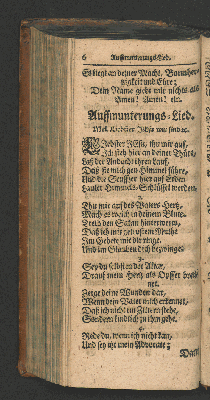 6 Auffmunterungs-Lied.
Es liegt an deiner Macht, Barmher-
tzigkeit und Ehre;
Dein Name giebt mir nichts als
Amen! Amen! etc.
Auffmunterungs-Lied.
Mel. Liebster JEsu wir sind etc.
LIebster JEsu, thu mir auf,
Ich steh hier an deiner Thür,
Laß der Andacht ihren Lauf,
Daß sie mich gen Himmel führe,
Und die Seuffzer hier auf Erden
Lauter Himmels-Schlüssel werden.
2.
Thu mir auf des Vaters Hertz,
Mach es weich in deinem Blute,
Treib den Satan hinterwerts,
Daß ich mit
Im Gebete mit dir ringe,
Und im Glauben dich bezwinge.
3.
Sey du selbst an der Altar,
Drauf mein Hertz als Opffer bren-
net.
Zeige deine Wunden dar,
Wenn dein Vater mich erkennet,
Daß ich nicht im Zittern stehe,
Sondern kindlich zu ihm gehe.
4.
Rede du, wenn ich nicht kan,
Und sey itzt mein Advocate;
Daß